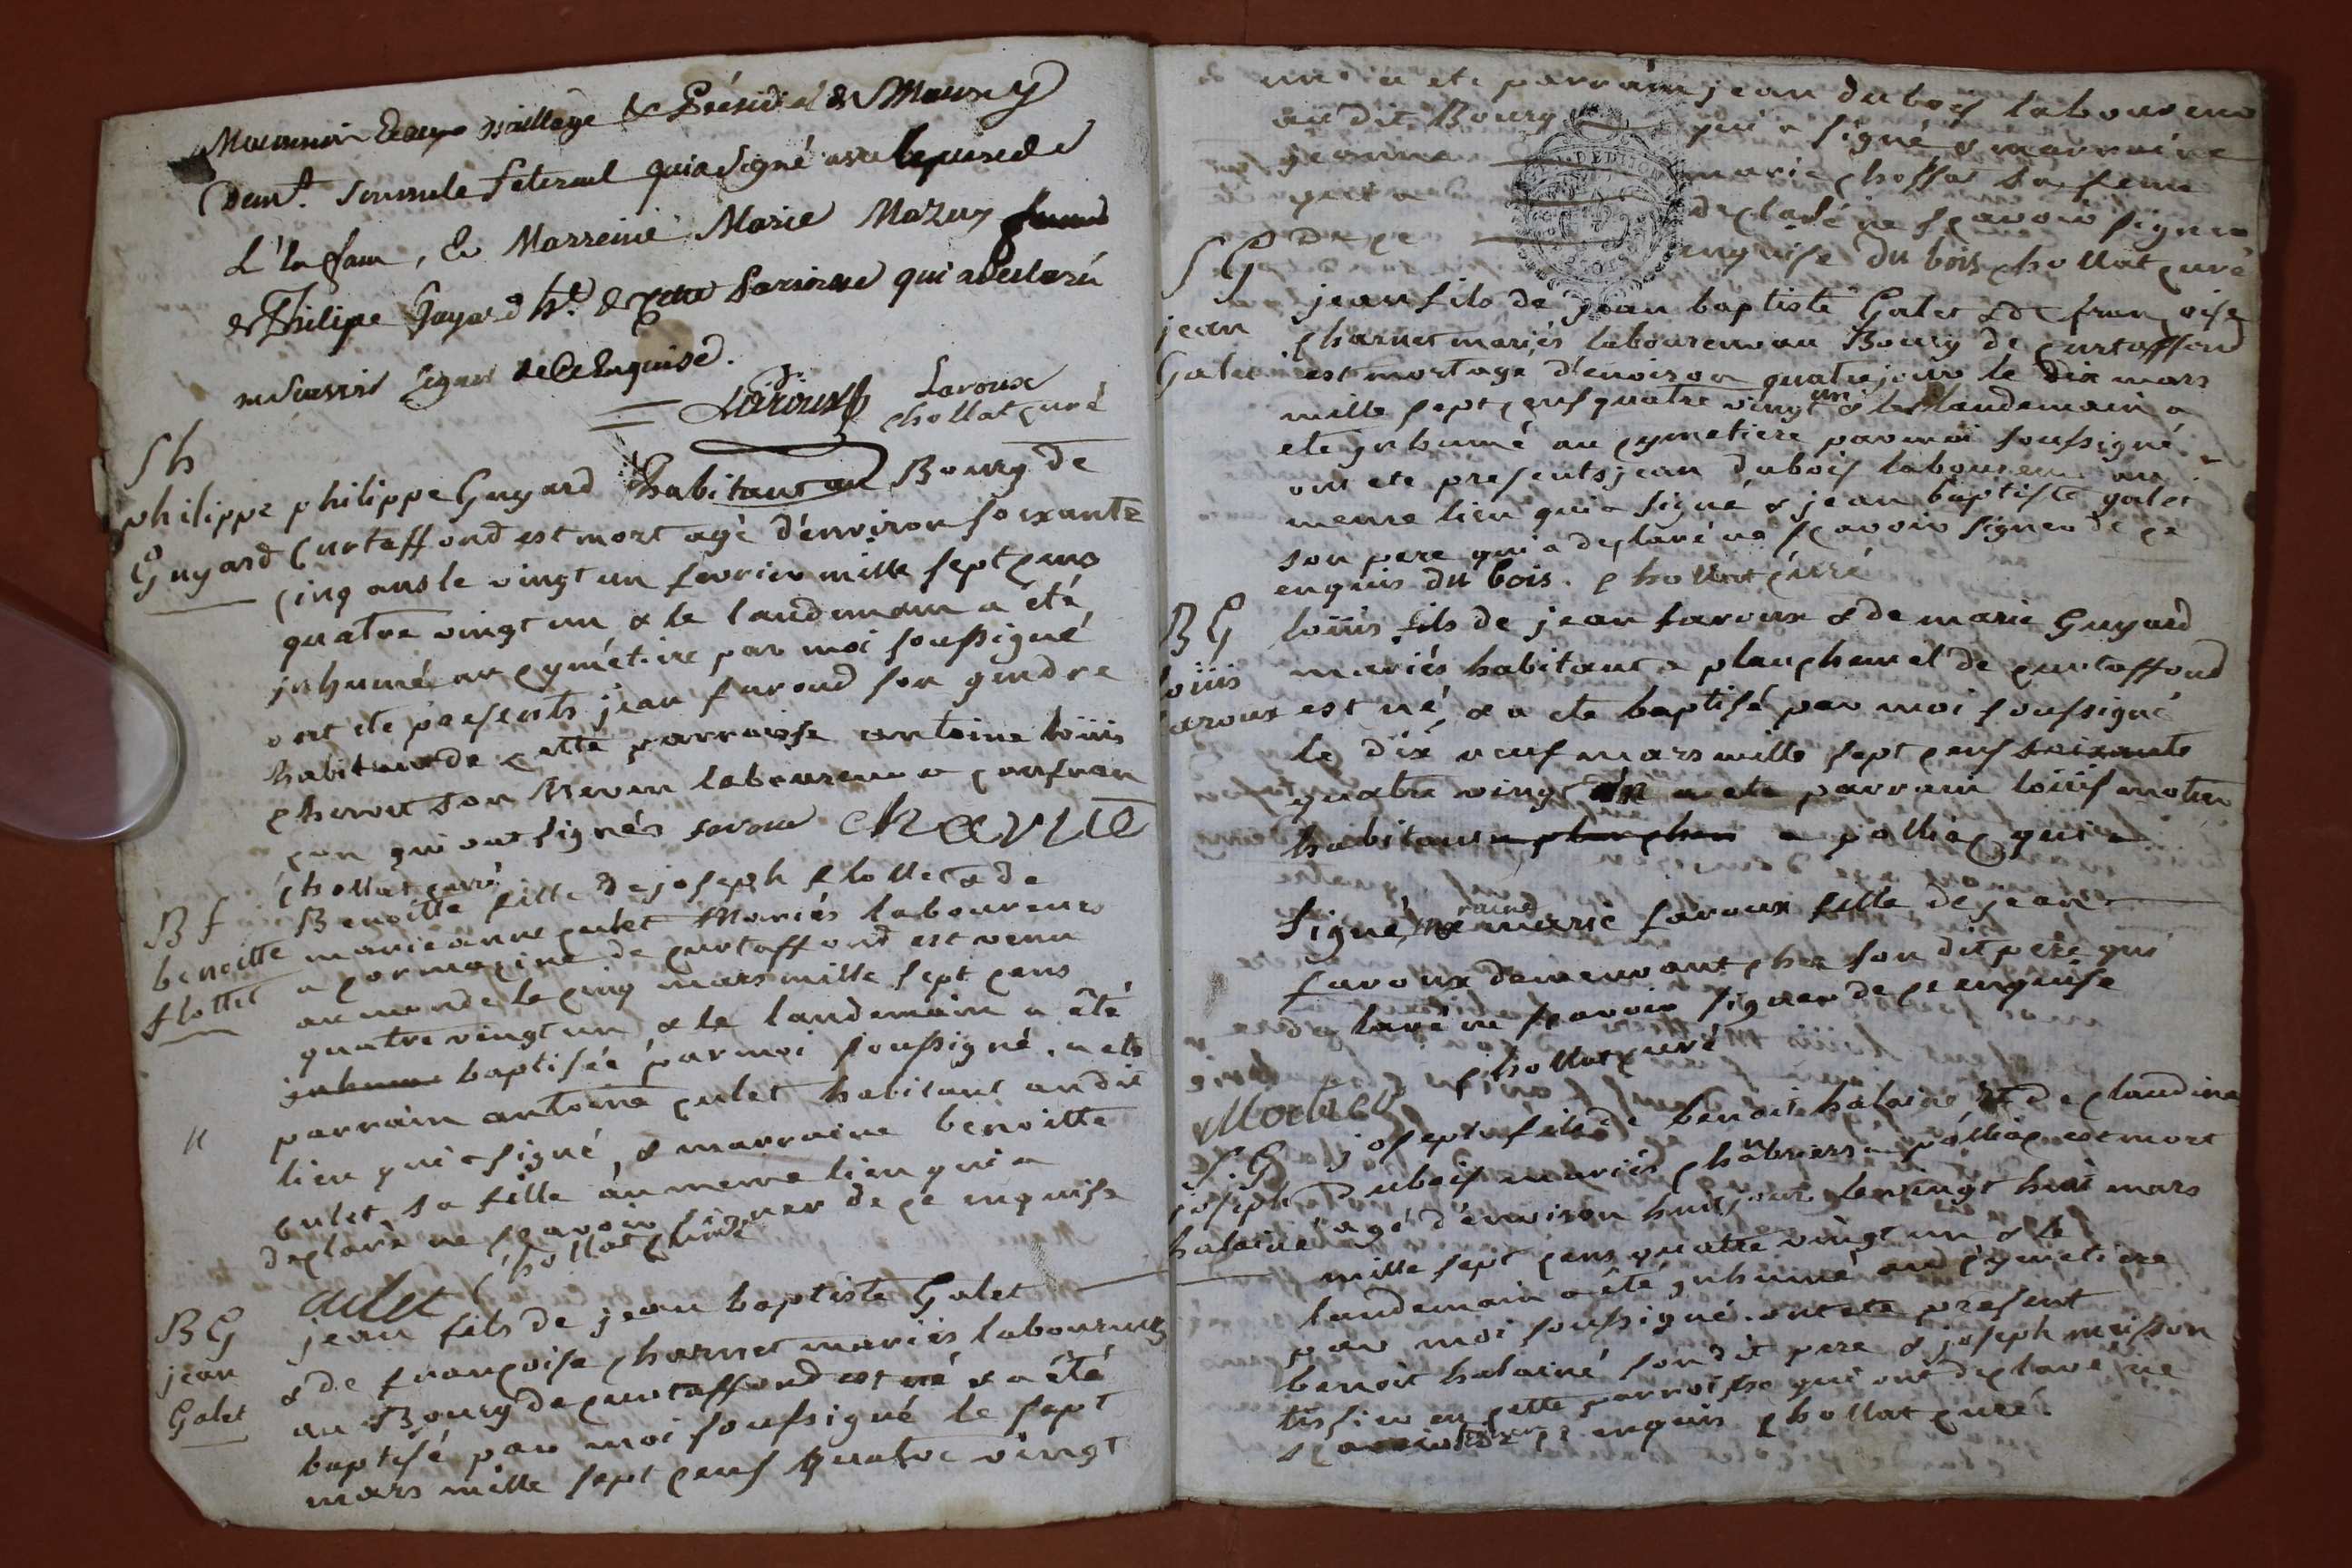 Baillage & Présidial de
Demt. qui a signé avec le pere de
L'Enfant, Et Marreine Marie Mazuy
de Philipe Guyard ht. de cette Parroisse qui a déclaré
ne scavoir signer de ce Enquise.
Laroux Laroux
chollat curé
Sh
philippe philippe Guyard habitant au Bourg de
Guyard Curtaffond est mort agé d'environ soixante
cinq ans le vingt un fevrier mille sept cens
quatre vingt un & le landemain a été
jnhumé au cymétiere par moi soussigné
ont ete presents jean faroud son gendre
habitant de cette parroisse antoine loüis
charvet son neveu laboureur a confran
çon qui ont signés faroux charvet
chollat curé
B f Benoitte fille de joseph flottet & de
benoitte marieanne culet Mariés laboureurs
flottet a cormozine de curtaffond est venu
au monde le cinq mars mille sept cens
quatre vingt un & le landemain a été
jnhumé baptisée par moi soussigné. a ete
parrain antoine culet habitant au dit
lieu qui a signé, & marraine benoitte
culet sa fille au meme lieu qui a
declaré ne scavoir signer de ce enquise
culet chollat curé
B G jean fils de jean baptiste Galet
jean & de françoise charnet mariés laboureurs
Galet au Bourg de curtaffond est né & a été
baptisé par moi soussigné le sept
mars mille sept cens quatre vingt
un. a ete parrain jean dubois laboureur
au dit Bourg qui a signé & marraine
jeanne marie chossat sa feme
qui a declaré ne scavoir signer
de ce enquise du bois chollat curé
S G jean fils de jean baptiste Galet & de françoise
jean charnet mariés laboureur au Bourg de curtaffond
Galet est mort agé d'environ quatre jour le dix mars
mille sept cens quatre vingt un & le landemain a
ete jnhumé au cymetiere par moi soussigné
ont ete presents jean dubois laboureur au
meme lieu qui a signé & jean baptiste galet
son pere qui a declaré ne scavoir signer de ce
enquis du bois. chollat curé
B G loüis fils de jean faroux & de marie Guyard
loüis mariés habitant a planchemel de curtaffond
faroux est né & a ete baptisé par moi soussigné
le dix neuf mars mille sept cens soixante
quatre vingt un a ete parrain loüis motier
habitant a planchem a polliac qui a
signé, maraine marie faroux fille de jean
faroux demeurant chez son dit pere qui
laré ne scavoir signer de ce enquise
chollat curé
Motier
S: G joseph fils de benoit halainé & de claudine
joseph Dubois mariés a polliac est mort
halainé agé d'environ huit jour le vingt huit mars
mille sept cens quatre vingt un & le
landemain a été jnhumé au cymetiere
par moi soussigné. ont ete present
benoit halainé son dit pere & joseph moisson
tissier en cette parroisse qui ont declaré ne
scavoir signer de ce enquis chollat curé.